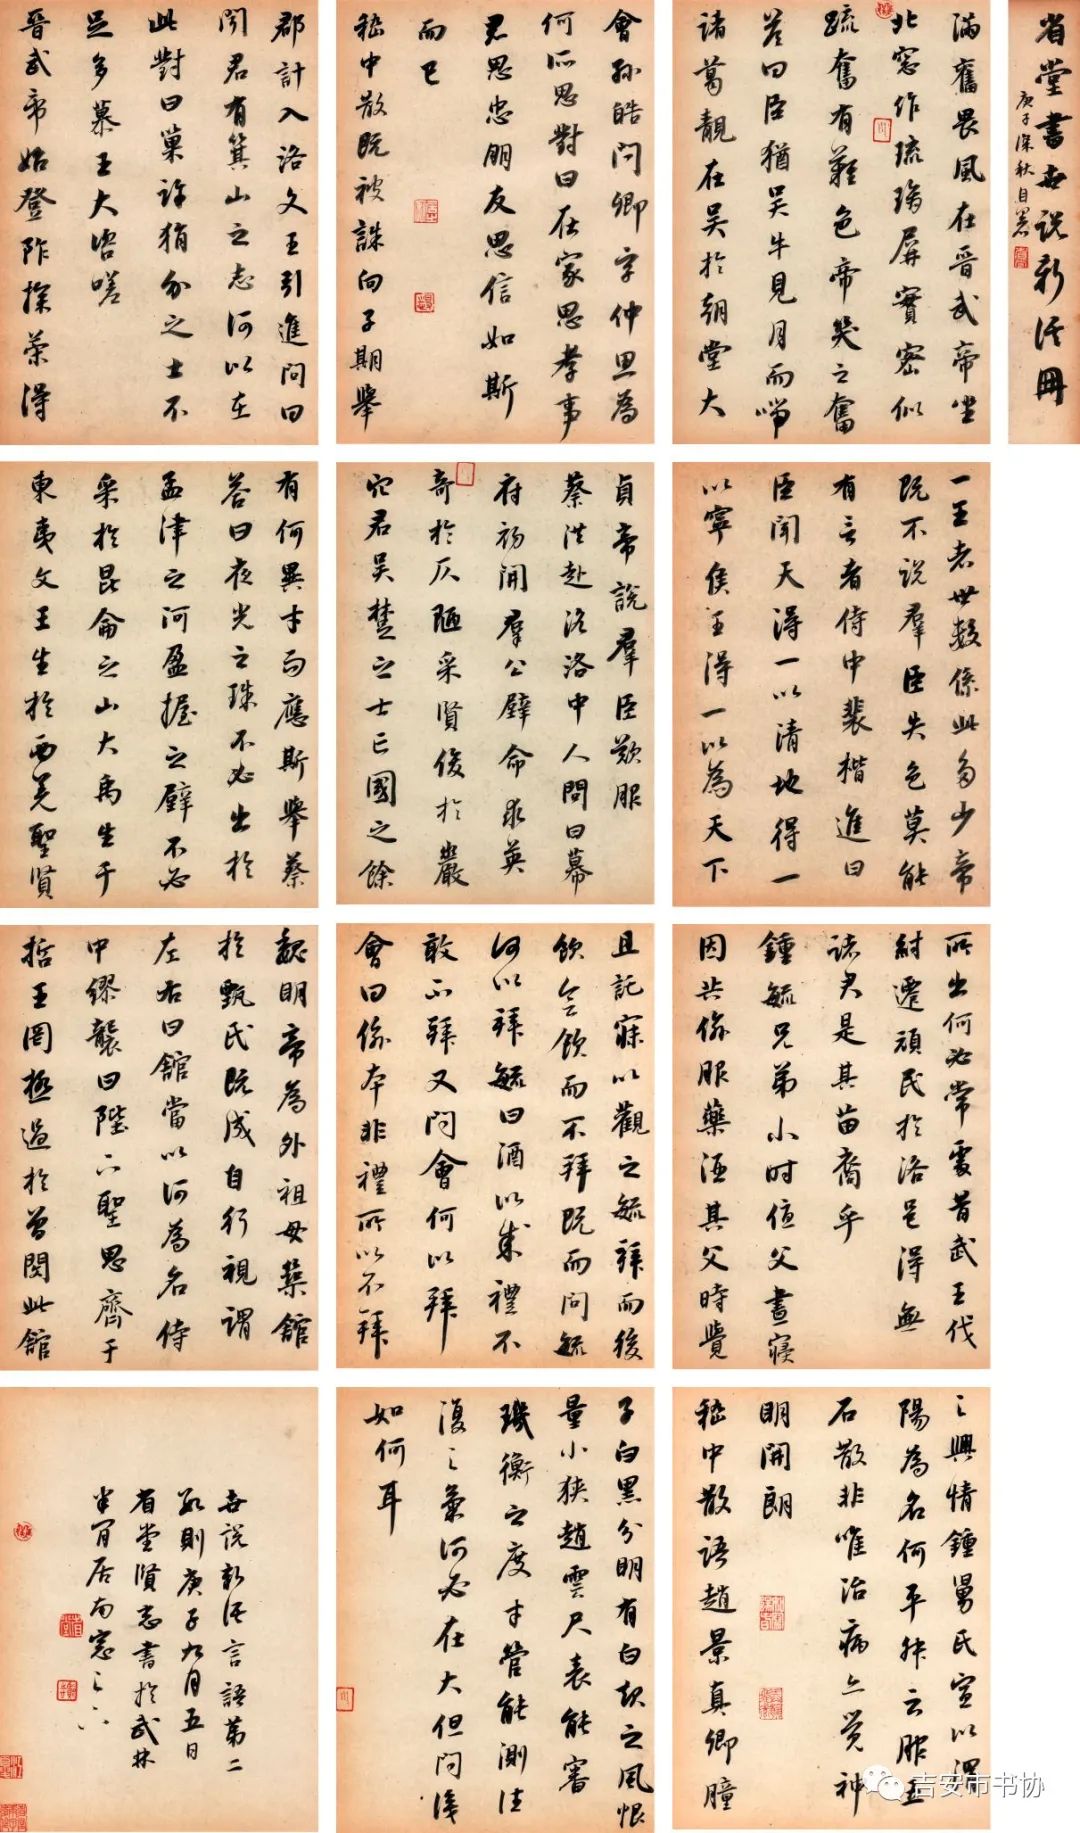 省堂書世說新語冊
庚子深秋自署
滿奮畏風在晉武帝坐
北窓作琉璃屏實密似
疏奮有難色帝笑之奮
答曰臣猶吳牛見月而喘
諸葛靚在吳於朝堂大
會孫皓問卿字仲思為
何所思對曰在家思孝事
君思忠朋友思信如斯
而已
嵇中散既被誅向子期舉
郡計入洛文王引進問曰
聞君有箕山之志何以在
此對曰巢許狷介之士不
足多慕王大咨嗟
晉武帝始登阼探策得
一王者世數係此多少帝
既不說羣臣失色莫能
有言者侍中裴楷進曰
臣聞天得一以清地得一
以寧侯王得一以為天下
貞帝說羣臣歎服
蔡洪赴洛洛中人問曰幕
府初開羣公辟命求英
奇於仄陋采賢俊於巖
穴君吳楚之士亡國之餘
有何異才而應斯舉蔡
答曰夜光之珠不必出於
孟津之河盈握之璧不必
采於昆侖之山大禹生于
東夷文王生於西羌聖賢
所出何必常處昔武王伐
紂遷頑民於洛邑得無
諸君是其苗裔乎
鍾毓兄弟小時值父晝寢
因共偷服藥酒其父時覺
且託寐以觀之毓拜而後
飲會飲而不拜既而問毓
何以拜毓曰酒以成禮不
敢不拜又問會何以拜
會曰偷本非禮所以不拜
魏明帝為外祖母築館
於甄氏既成自行視謂
左右曰館當以何為名侍
中繆襲曰陛下聖思齊于
哲王罔極過於曾閔此館
之興情鍾舅氏宜以渭
陽為名何平叔云服五
石散非唯治病亦覺神
明開朗
嵇中散語趙景真卿瞳
子白黑分明有白起之風恨
量小狹趙雲尺表能審
璣衡之度寸管能測往
復之氣何必在大但問識
如何耳
世說新語言語第二
則庚子九月五日
省堂賢志書於武林
半間居南窓之下
吉安市书协